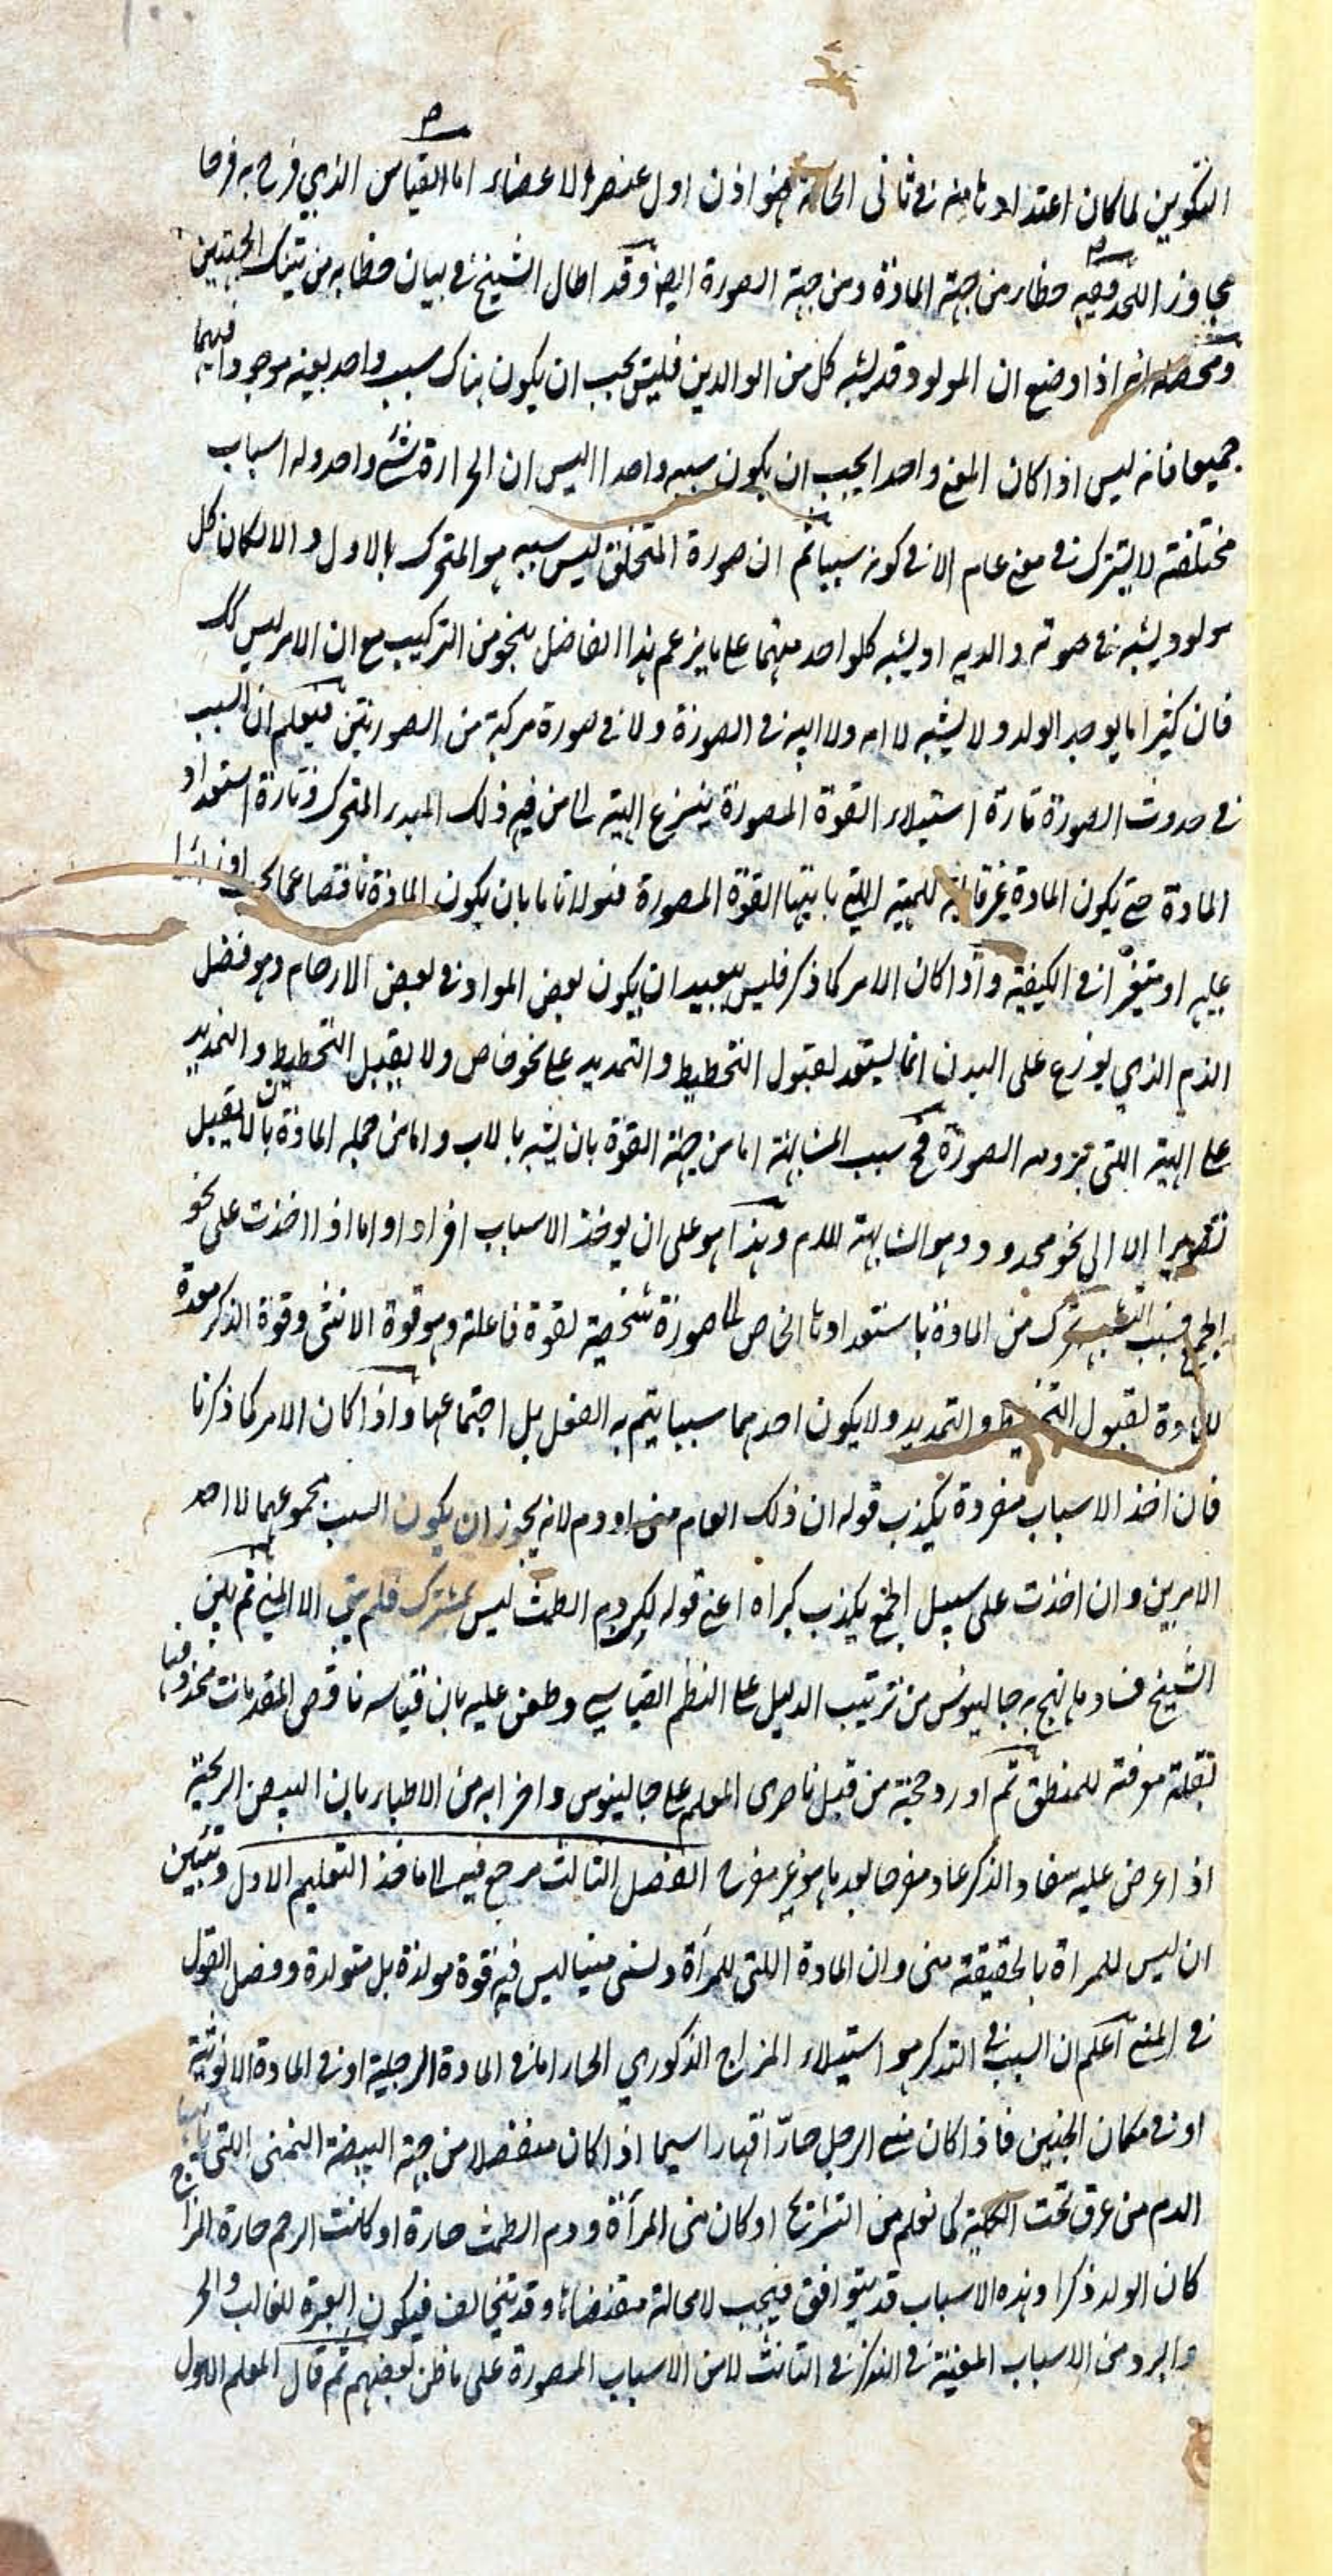 التكوين لما كان اعتدادنا منه في ثاني الحالة فهو اذن اول عنصر الاعضاء اما القياس الذي فرح به فرحا
مجاوز اللحد ففيه خطاء من جهة المادة ومن جهة الصورة ايضا وقد اطال الشيخ في بيان خطايه من تينك الجهتين
ومحصله انه اذا وضع ان المولود قد يشبه كل من الوالدين فليس يجب ان يكون هناك سبب واحد بعينه موجودا فيهما
جميعا فانه ليس اذا كان المعنى واحدا يجب ان يكون سببه واحدا اليس ان الحرارة شيء واحد وله اسباب
مختلفة لا يشترك في معنى عام الا في كونه سببا ثم ان صورة المتخلق ليس سببه هو المتحرك بالاول والا لكان كل
مولود يشبه في صوته والديه او يشبه كلواحد منهما على ما يزعم هذا الفاضل بنحو من التركيب مع ان الامر ليس كك
فان كثيرا ما يوجد الولد ولا يشبه لا امه ولا ابيه في الصورة ولا في صورة مركبة من الصورتين فيعلم ان السبب
في حدوث الصورة تارة استيلاء القوة المصورة ينزع الهيئة الى من فيه ذلك المبدء المتحرك وتارة استعداد
المادة حتى يكون المادة غير قابلة للهيئة اللتي باينها القوة المصورة بان يكون المادة ناقصا عما او زائدا
عليه او متغيرا في الكيفية واذا كان الامر كما ذكر فليس ببعيد ان يكون بعض المواد في بعض الارحام وهو فضل
الدم الذي يوزع على البدن انما يستعد لقبول التخطيط والتمديد على نحو خاص ولا يقبل التخطيط والتمديد
على الهيئة اللتي الصورة فح سبب المشابهة اما من جهة القوة بان يشبه بالاب واما من جهة المادة بان لا يقبل
تصويرا الا الى نحو محدود وهو المشابهة للام وهذا هو على ان يوخذ الاسباب افرادا واما اذا اخذت على نحو
الجمع فسبب من المادة باستعدادها الخاص لها صورة شخصية لقوة فاعلة وهو قوة الانثى وقوة الذكر معدة
للمادة لقبول التخطيط والتمديد ولا يكون احدهما سببا يتم به الفعل بل اجتماعهما واذا كان الامر كما ذكرنا
فان اخذ الاسباب مفردة يكذب قوله ان ذلك العام منى او دم لانه يجوز ان يكون السبب مجموعهما لا احد
الامرين وان اخذت على سبيل الجمع يكذب كبراه اعني قوله لكن دم الطمث ليس بمشترك فلم يبق الا المني ثم بين
الشيخ فساد ما نهج به جالينوس من ترتيب الدليل على النظم القياسي وطعن عليه بان قياسه ناقص المقدمات محذوفها
لقلة معرفته للمنطق ثم اورد حجته من قبل ناصرى المعلم على جالينوس واضرابه من الاطباء بان البيض الريحية
اذا عرض عليه سفاد الذكر عاد مفرخا بعد ما هو غير مفرخ الفصل الثالث مرجع فيه الى ماخذ التعليم الاول وتبين
ان ليس للمراة بالحقيقة منى وان المادة اللتي للمرأة ولسنى منيا ليس فيه قوة مولدة بل متولدة وفصل القول
في المني اعلم ان السبب في التذكر هو استيلاء المزاج الذكوري الحار اما في المادة الرجلية او في المادة الانوثية
او في مكان الجنين فاذا كان مني الرجل حارا سيما اذا كان منفصلا من جهة البيضة اليمنى اللتي
الدم من عرق تحت الكلية كما نعلم من التشريح او كان منى المرأة ودم الطمث حارة او كانت الرحم حارة المزاج
كان الولد ذكرا وهذه الاسباب قد يتوافق فيجب لامحالة مقتضاها وقد تتخالف فيكون العبرة للغالب والحر
والبرد من الاسباب المعينة في التذكر في التانث لا من الاسباب المصورة على ما ظن بعضهم ثم قال المعلم الاول